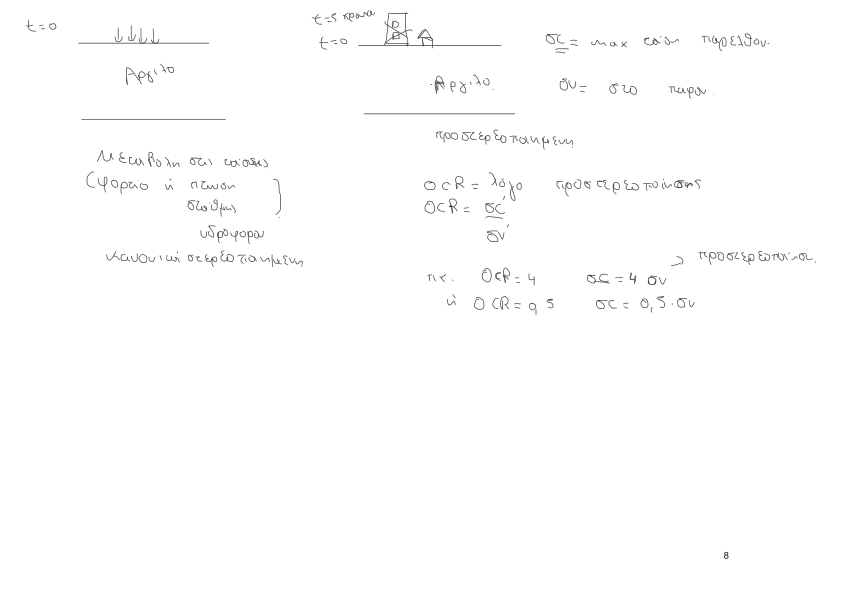 t=0
Αργιλο
Μεταβολη στις τασεις
(φορτιο ή πτωση
στάθμης
υδροφορα
κανονικη στερεοποιημενη
t=5 χρονια
t=0
Αργιλο.
προστερεοποιημενη
σc = max τάση παρελθον.
σν = στο παρον
OCR = λόγο προστερεοποίησης
OCR = σc'
σν'
πχ. OCR = 4 σc = 4 σν
προστερεοποιησ.
ή OCR = 0,5 σc = 0,5·σν
8